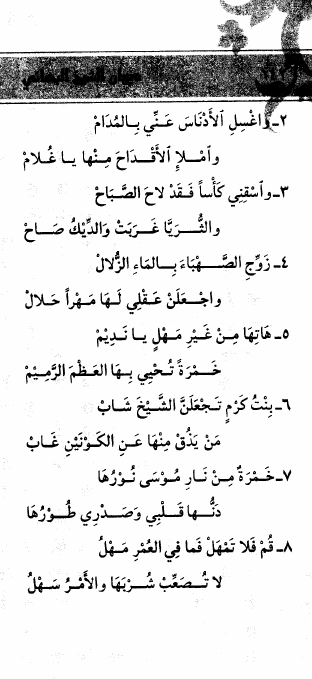 ديوان الشيخ البهائي
٢ـ واغْسِلِ الأَدْنَاسَ عَنِّي بِالمُدَامْ
وامْلإِ الأَقْدَاحَ مِنْها يا غُلَامْ
٣ـ وٱسْقِنِي كَأْساً فَقَدْ لاحَ الصَّبَاحْ
والثُّرَيَّا غَرَبَتْ وَالدِّيْكُ صَاحْ
٤ـ زَوِّجِ الصَّهْبَاءَ بِالمَاءِ الزُّلالْ
واجْعَلَنْ عَقْلِي لَهَا مَهْراً حَلالْ
٥ـ هَاتِهَا مِنْ غَيْرِ مَهْلٍ يا نَدِيْمْ
خَمْرَةً تُحْيِي بِهَا العَظْمَ الرَّمِيْمْ
٦ـ بِنْتُ كَرْمٍ تَجْعَلَنَّ الشَّيْخَ شَابْ
مَنْ يَذُقْ مِنْهَا عَنِ الكَوْنَيْنِ غَابْ
٧ـ خَمْرَةٌ مِنْ نَارِ مُوْسَى نُوْرُهَا
دَنُّها قَلْبِي وَصَدْرِي طُوْرُهَا
٨ـ قُمْ فَلا تَمْهَلْ فَما فِي العُمْرِ مَهْلُ
لا تُصَعِّبْ شُرْبَهَا والأَمْرُ سَهْلُ